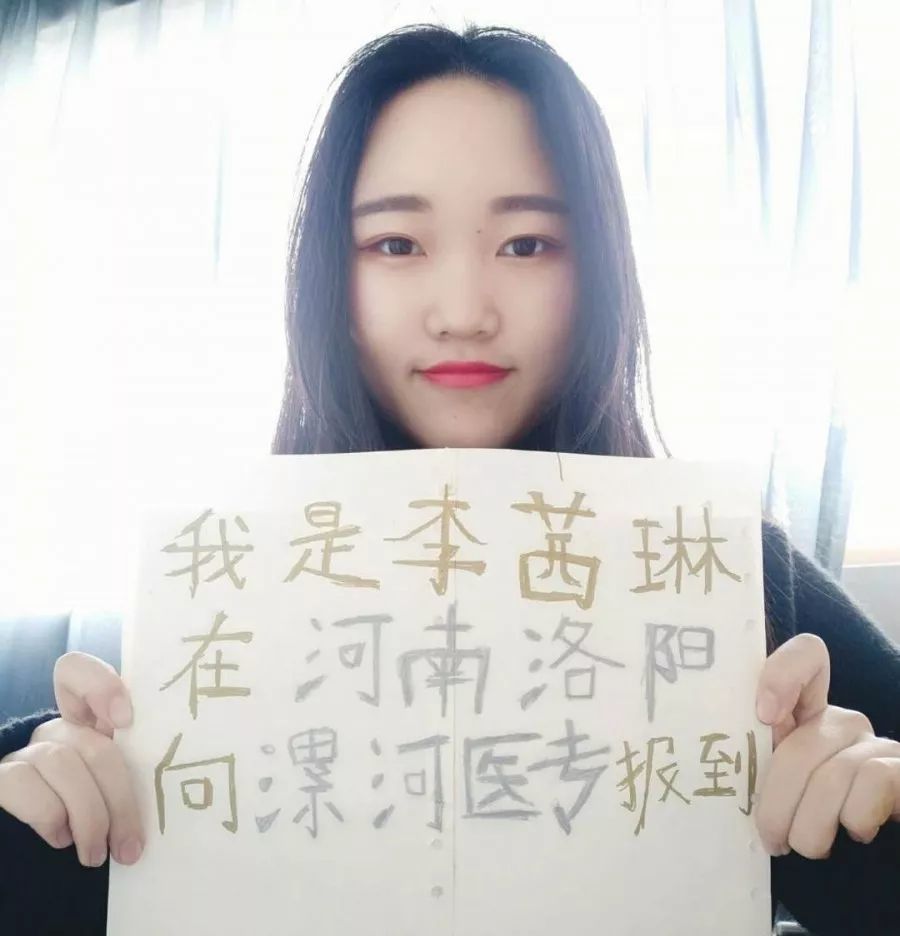 我是李茜琳
在河南洛阳
向漯河医专报到